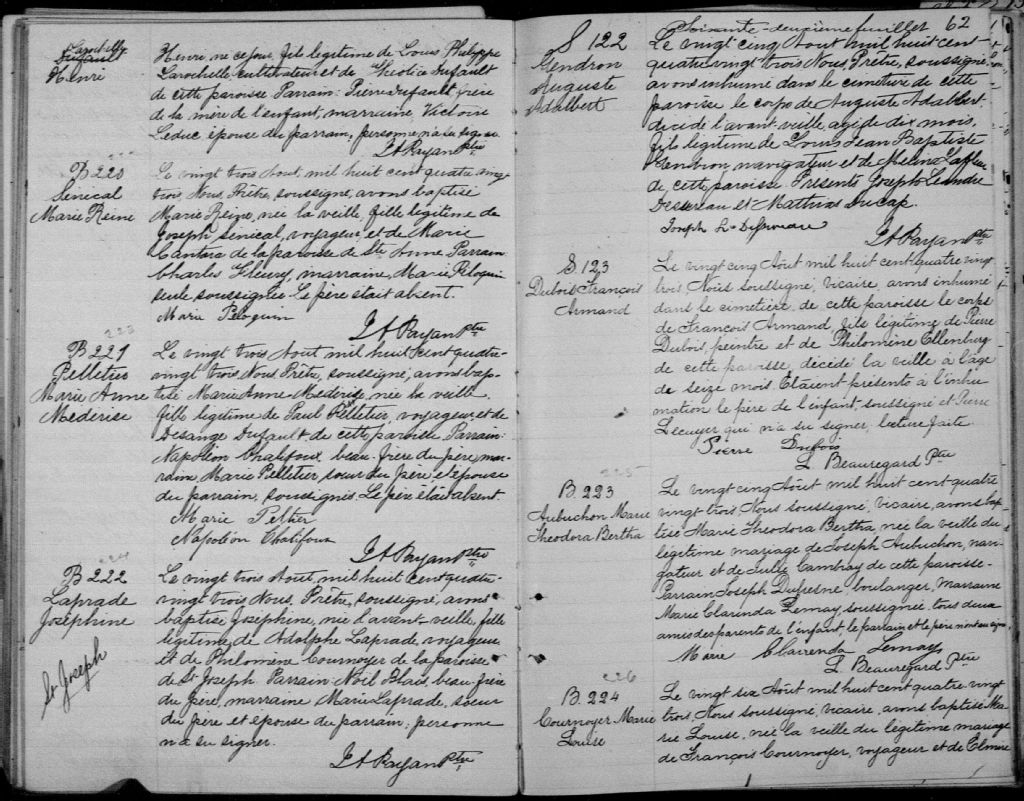 Larochelle
Dufault
Henri
Henri, né ce jour, fils légitime de Louis Philippe
Larochelle cultivateur et de Exilia Dufault
de cette paroisse Parrain: Pierre Dufault, frère
de la mère de l'enfant, marraine, Victoire
Leduc épouse du parrain, personne n'a su signer.
Payan Ptre
B 220
Sénécal
Marie Reine
Le vingt trois Aout, mil huit cent quatre vingt
trois, Nous, Prêtre, soussigné, avons baptisé
Marie Reine, née la veille, fille légitime de
Joseph Sénécal, voyageur, et de Marie
Cantara de la paroisse de Ste Anne Parrain
Charles Fleury, marraine, Marie Péloquin
seule soussignée. Le père était absent.
Marie Peloquin
Payan Ptre
223
B 221
Pelletier
Marie Anne
Mederise
Le vingt trois Aout mil huit cent quatre-
vingt trois Nous Prêtre, soussigné, avons bap-
tisé Marie Anne Mederise, née la veille
fille légitime de Paul Pelletier, voyageur, et de
Desange Dufault de cette paroisse Parrain:
Napoléon Chalifoux beau-frère du père, mar-
raine, Marie Pelletier, soeur du père et épouse
du parrain, soussignés Le père était absent.
Marie Peltier
Napoléon Chalifoux
Payan Ptre
224
B 222
Laprade
Joséphine
St Joseph
Le vingt trois Aout, mil huit cent quatre-
vingt trois Nous, Prêtre, soussigné, avons
baptisé Joséphine, née l'avant-veille, fille
légitime de Adolphe Laprade, voyageur
et de Philomène Cournoyer de la paroisse
de St Joseph Parrain: Noël Blais, beau-frère
du père, marraine Marie Laprade, soeur
du père et épouse du parrain; personne
n'a su signer.
Payan Ptre
Soixante-deuxième feuillet 62
S 122
Gendron
Auguste
Adalbert
Le vingt cinq Aout mil huit cent-
quatre vingt trois Nous Prêtre, soussigné
avons inhumé dans le cimetière de cette
paroisse le corps de Auguste Adalbert.
décédé l'avant veille, agé de dix mois,
fils légitime de Louis Jean Baptiste
Gendron, navigateur et de Mélina
de cette paroisse Présents Joseph Leandre
et Mathias Ducap.
Joseph L
Payan Ptre
S. 123
Dubois François
Armand
Le vingt cinq Aout mil huit cent quatre vingt
trois Nous soussigné, vicaire, avons inhumé
dans le cimetière, de cette paroisse le corps
de François Armand, fils légitime de Pierre
Dubois, peintre et de Philomène Ellenburg
de cette paroisse, décédé la veille à l'age
de seize mois Etaient présents à l'inhu
mation le père de l'enfant, soussigné et Pierre
Lecuyer qui n'a su signer, lecture faite
Pierre Dubois
L Beauregard Ptre
225
B. 223
Aubuchon Marie
Theodora Bertha
Le vingt cinq Aout mil huit cent quatre
vingt trois, Nous soussigné, vicaire, avons bap
tisé Marie Theodora Bertha, née la veille du
légitime mariage de Joseph Aubuchon, navi-
gateur et de Julie Cambray de cette paroisse-
Parrain Joseph Dufresne, boulanger, Marraine
Marie Clarinda Lemay soussignée, tous deux
amis des parents de l'enfant, le parrain et le père n'ont su signer
Marie Clarrenda Lemay
L Beauregard Ptre
226
B. 224
Cournoyer Marie
Louise
Le vingt six Aout mil huit cent quatre-vingt
trois, Nous soussigné, vicaire, avons baptisé Ma
rie Louise, née la veille du légitime mariage
de François Cournoyer, voyageur et de Elmire